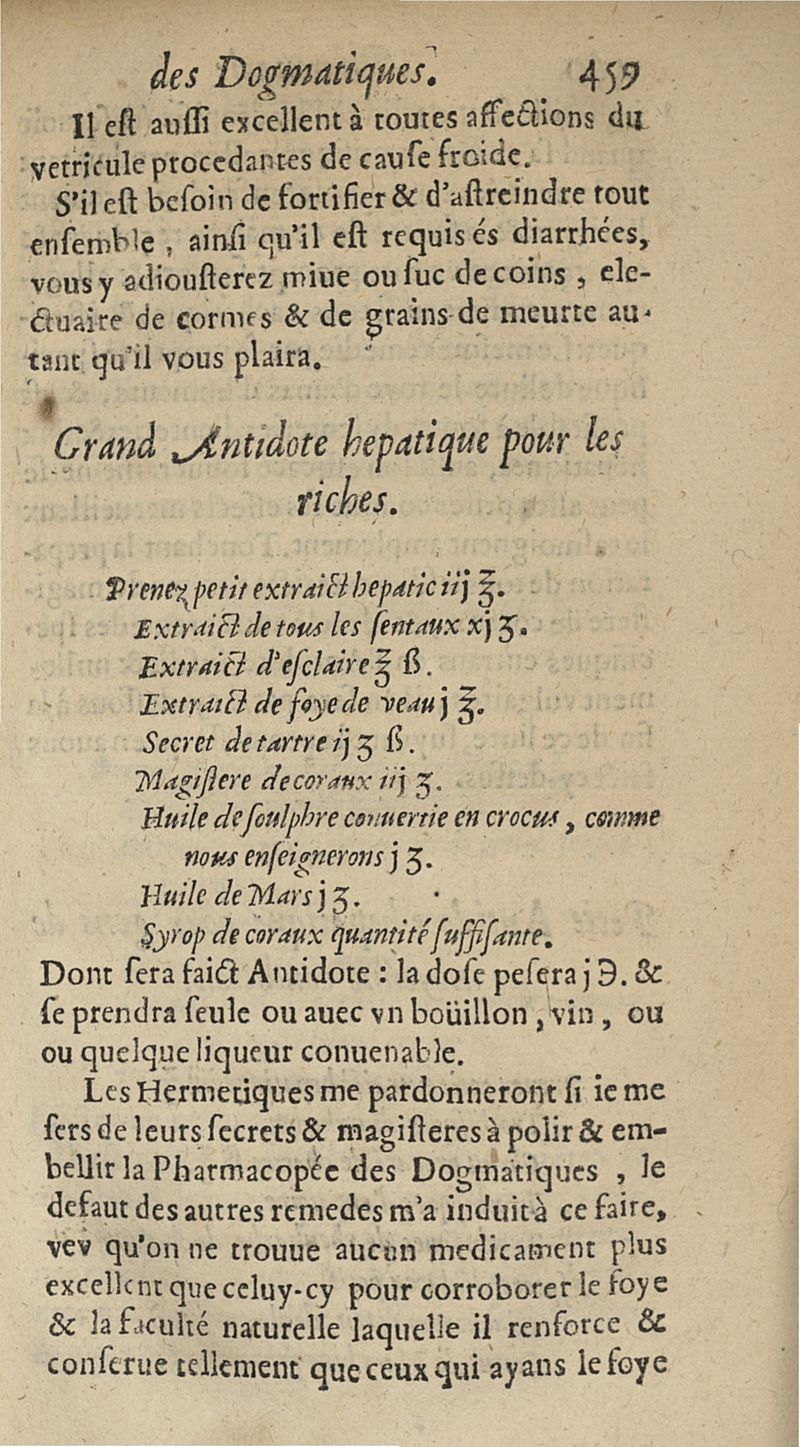 des Dogmatiques. 459
Il eſt auſſi excellent à toutes affections du
vetricule procedantes de cauſe froide.
S'il eſt beſoin de fortifier & d'aſtreindre tout
enſemble, ainſi qu'il eſt requis és diarrhées,
vous y adiouſterez miue ou ſuc de coins, ele-
ctuaire de cormes & de grains de meurte au-
tant qu'il vous plaira.
Grand Antidote hepatique pour les
riches.
Prenez petit extraict hepatic iij ℥.
Extraict de tous les ſentaux xj ʒ.
Extraict d'eſclaire ℥ ß.
Extraict de foye de veau j ℥.
Secret de tartre ij ʒ ß.
Magiſtere de coraux iij ʒ.
Huile de ſoulphre conuertie en crocus, comme
nous enſeignerons j ʒ.
Huile de Mars j ʒ.
Syrop de coraux quantité ſuffiſante.
Dont ſera faict Antidote : la doſe peſera j ℈. &
ſe prendra ſeule ou auec vn boüillon, vin, ou
ou quelque liqueur conuenable.
Les Hermetiques me pardonneront ſi ie me
ſers de leurs ſecrets & magiſteres à polir & em-
bellir la Pharmacopée des Dogmatiques, le
defaut des autres remedes m'a induit à ce faire,
vev qu'on ne trouue aucun medicament plus
excellent que celuy-cy pour corroborer le foye
& la faculté naturelle laquelle il renforce &
conſerue tellement que ceux qui ayans le foye